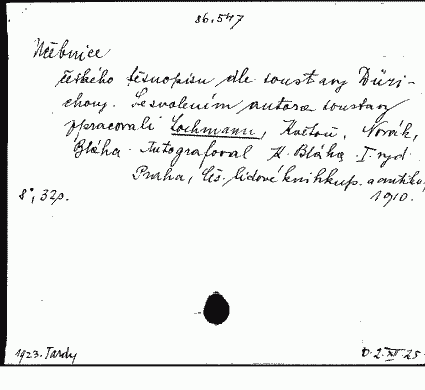 86.547
Učebnice
českého těsnopisu dle soustavy Düri-
chovy. Se svolením autora soustavy
zpracovali Lochmann, Květoň, Novák,
Bláha. Autografoval K. Bláha. I. vyd.
Praha, Čes. lidové knihkup. a antikv.
8°, 32p. 1910.
1923. Tardy D. 2. XII. 25